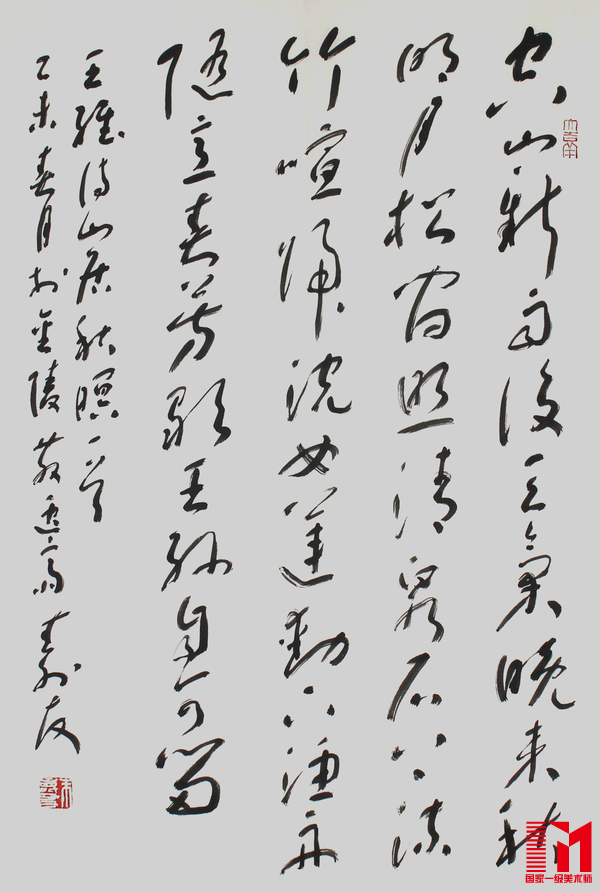 空山新雨後天氣晚來秋
明月松間照清泉石上流
竹喧歸浣女蓮動下漁舟
隨意春芳歇王孫自可留
王維詩山居秋暝一首
乙未春月於金陵
国家一级美术师